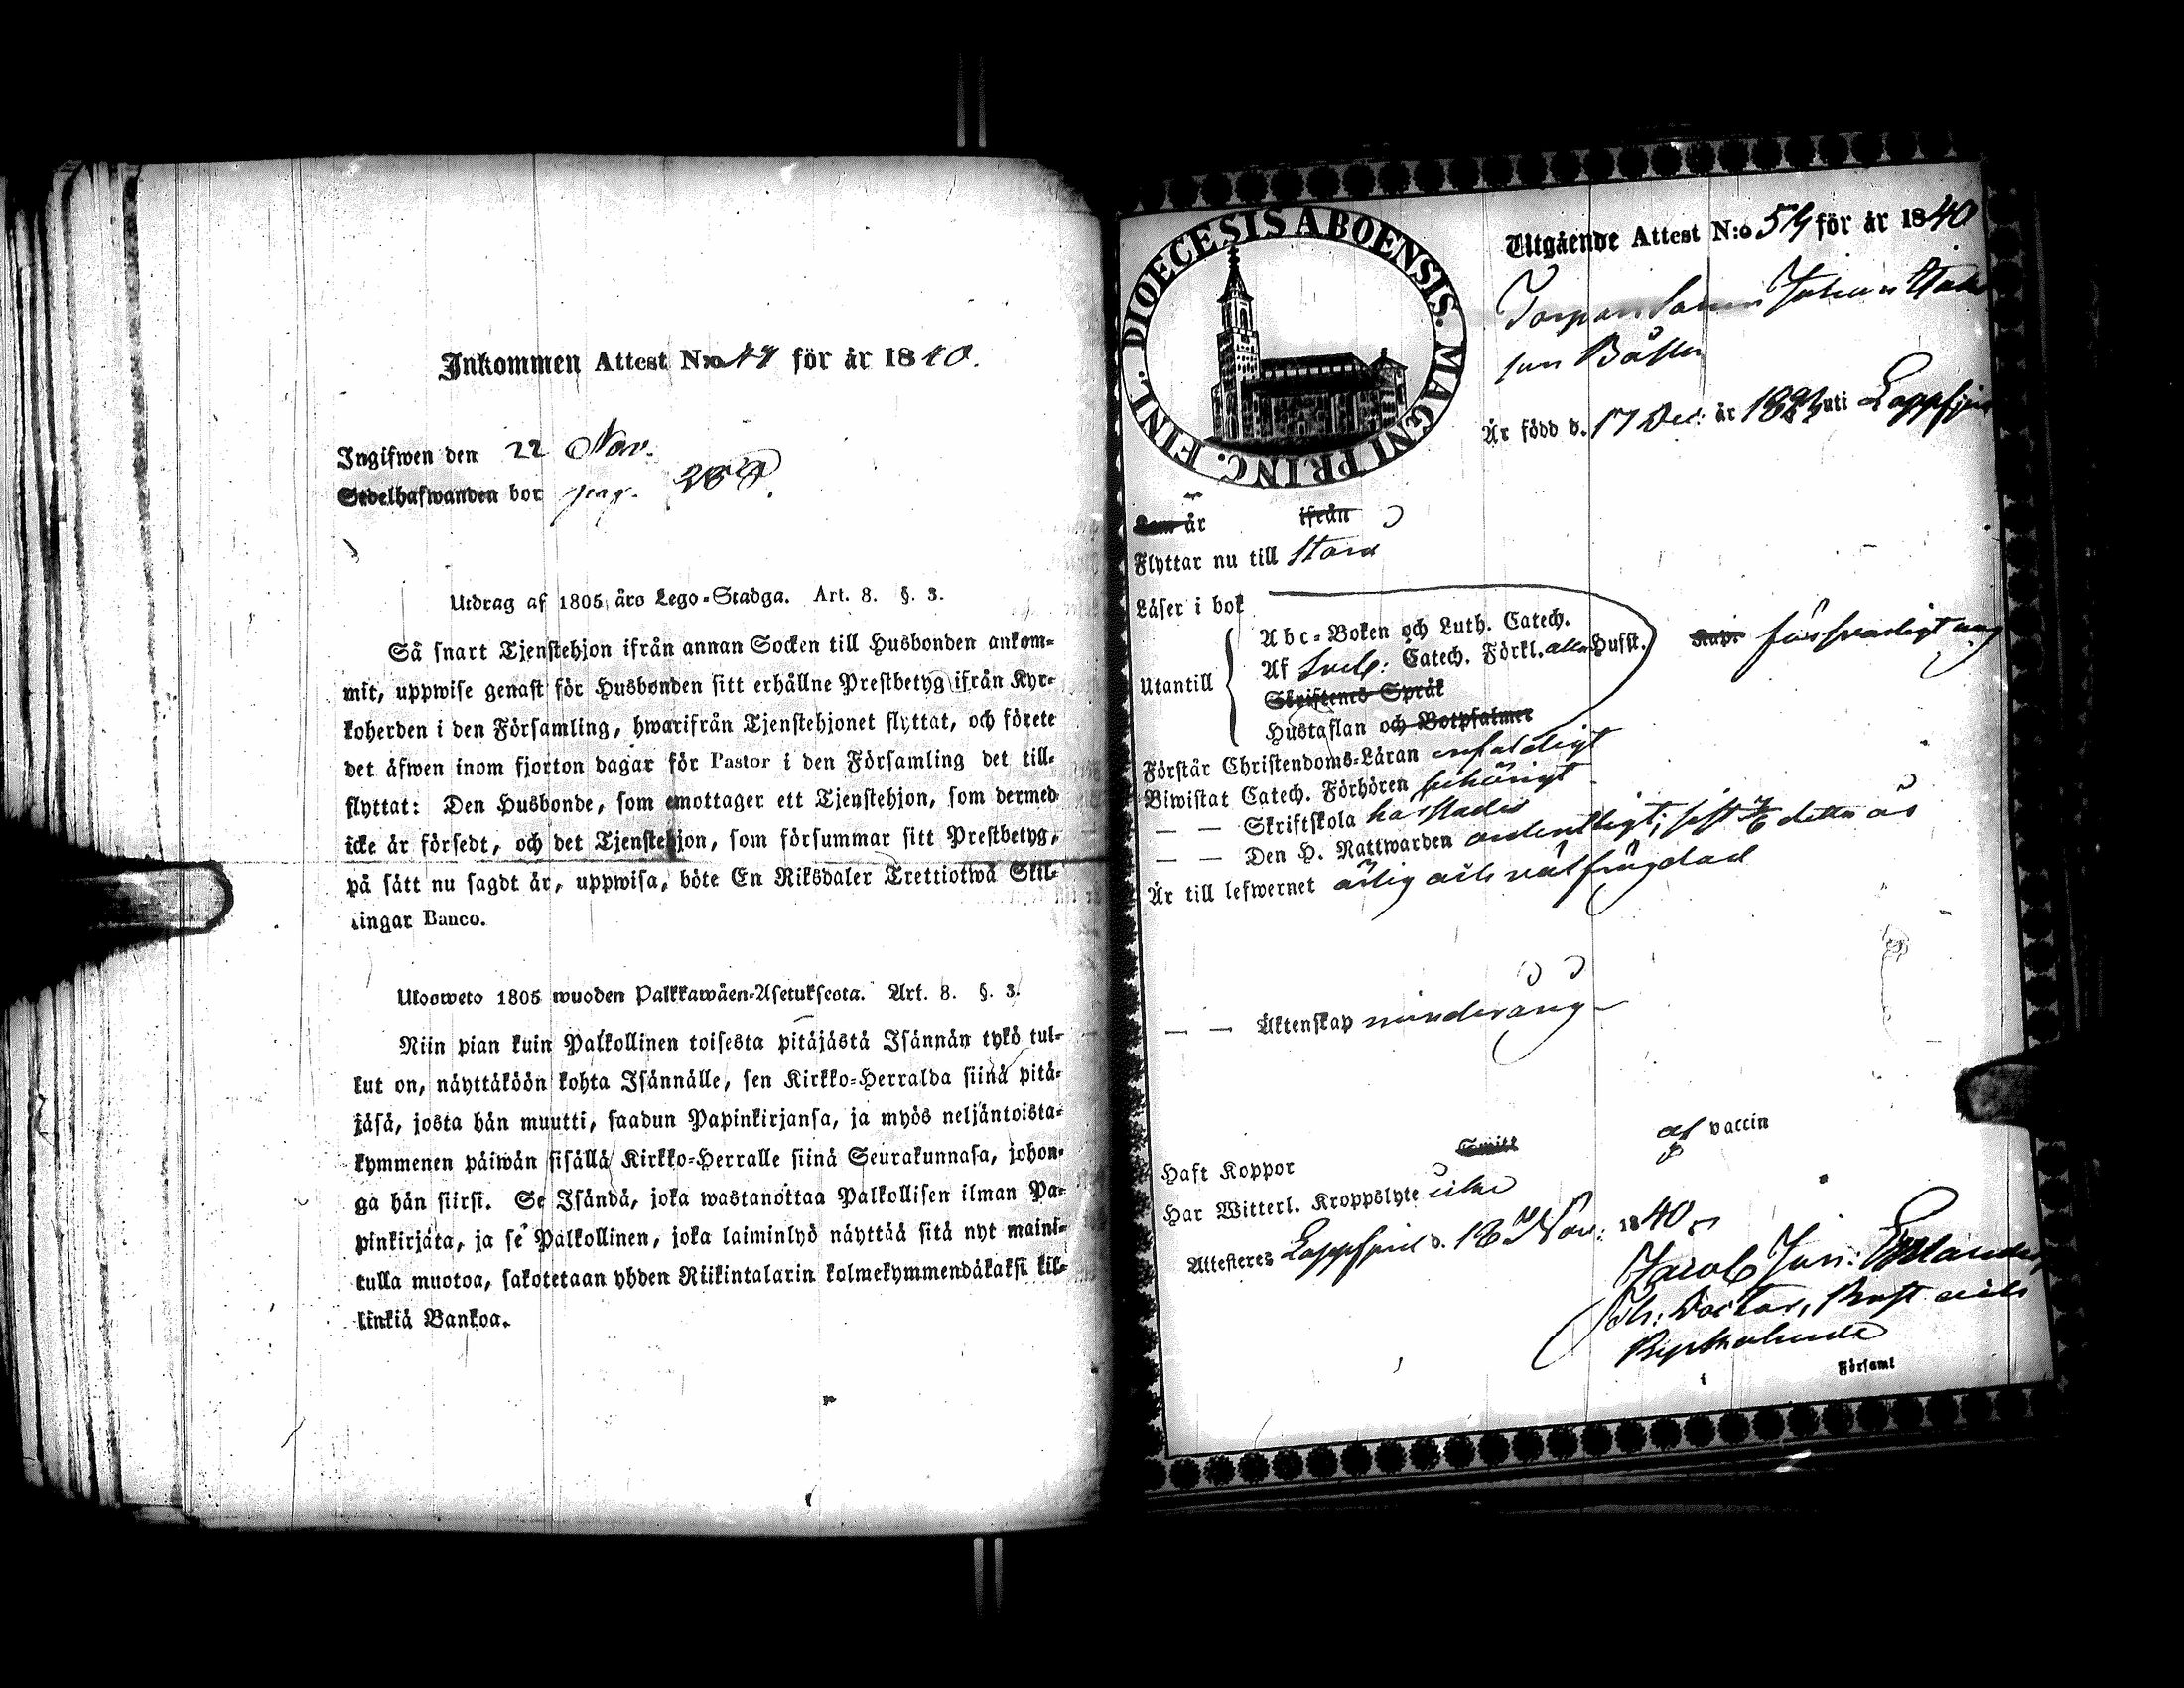 Inkommen Attest N:o 47 för år 1840.
Ingifwen den 22 Nov.
Sedelhafwanden bor pag.
Utdrag af 1805 års Lego-Stadga. Art. 8. §. 3.
Så snart Tjenstehjon ifrån annan Socken till Husbonden ankom-
mit, uppwise genast för Husbonden sitt erhållne Prestbetyg ifrån Kyr-
koherden i den Församling, hwarifrån Tjenstehjonet flyttat, och förete
det äfwen inom fjorton dagar för Pastor i den Församling det till-
flyttat: Den Husbonde, som emottager ett Tjenstehjon, som dermed
icke är försedt, och det Tjenstehjon, som försummar sitt Prestbetyg,
på sätt nu sagdt är, uppwisa, böte En Riksdaler Trettiotwå Skil-
lingar Banco.
Ulosweto 1805 wuoden Palkkawäen-Asetuksesta. Art. 8. §. 3.
Niin pian kuin Palkollinen toisesta pitäjästä Isännän tykö tul-
kut on, näyttäköön kohta Isännälle, sen Kirkko-Herralda siinä pitä-
jäsä, josta hän muutti, saadun Papinkirjansa, ja myös neljäntoista-
kymmenen päiwän sisällä Kirkko-Herralle siinä Seurakunnasa, johon-
ga hän siirsi. Se Isändä, joka wastanottaa Palkollisen ilman Pa-
pinkirjata, ja se Palkollinen, joka laiminlyö näyttää sitä nyt maini-
tulla muotoa, sakotetaan yhden Riikintalarin kolmekymmendäkaksi kil-
linkiä Bankoa.
DIOECESIS ABOENSIS. MAGNI PRINC. FINL.
Utgående Attest N:o 54 för år 1840
Johan
son
Är född d. 17 Dec: år uti Lappfjerd
är ifrån
Flyttar nu till
Läser i bok
Abc-Boken och Luth. Catech.
Utantill Af Sveb: Catech. Förkl. allen Husst. försvarligt
Skriftenes Språk
Hustaflan och Botpsalmer
Förstår Christendoms-Läran enfaldigt
Biwistat Catech. Förhören behörigt
— — Skriftskola
— — Den H. Nattwarden ordentligt; sist detta år
Är till lefwernet ärlig och välfrägdad
— — Äktenskap minderårig
Haft Koppor af vaccin
Har Witterl. Kroppslyte icke
Attesteres Lappfjerd d. 18 Nov: 1840
Jacob Jon: Estlander,
Th: Doctor, Prost och
Kyrkoherde
i Församl